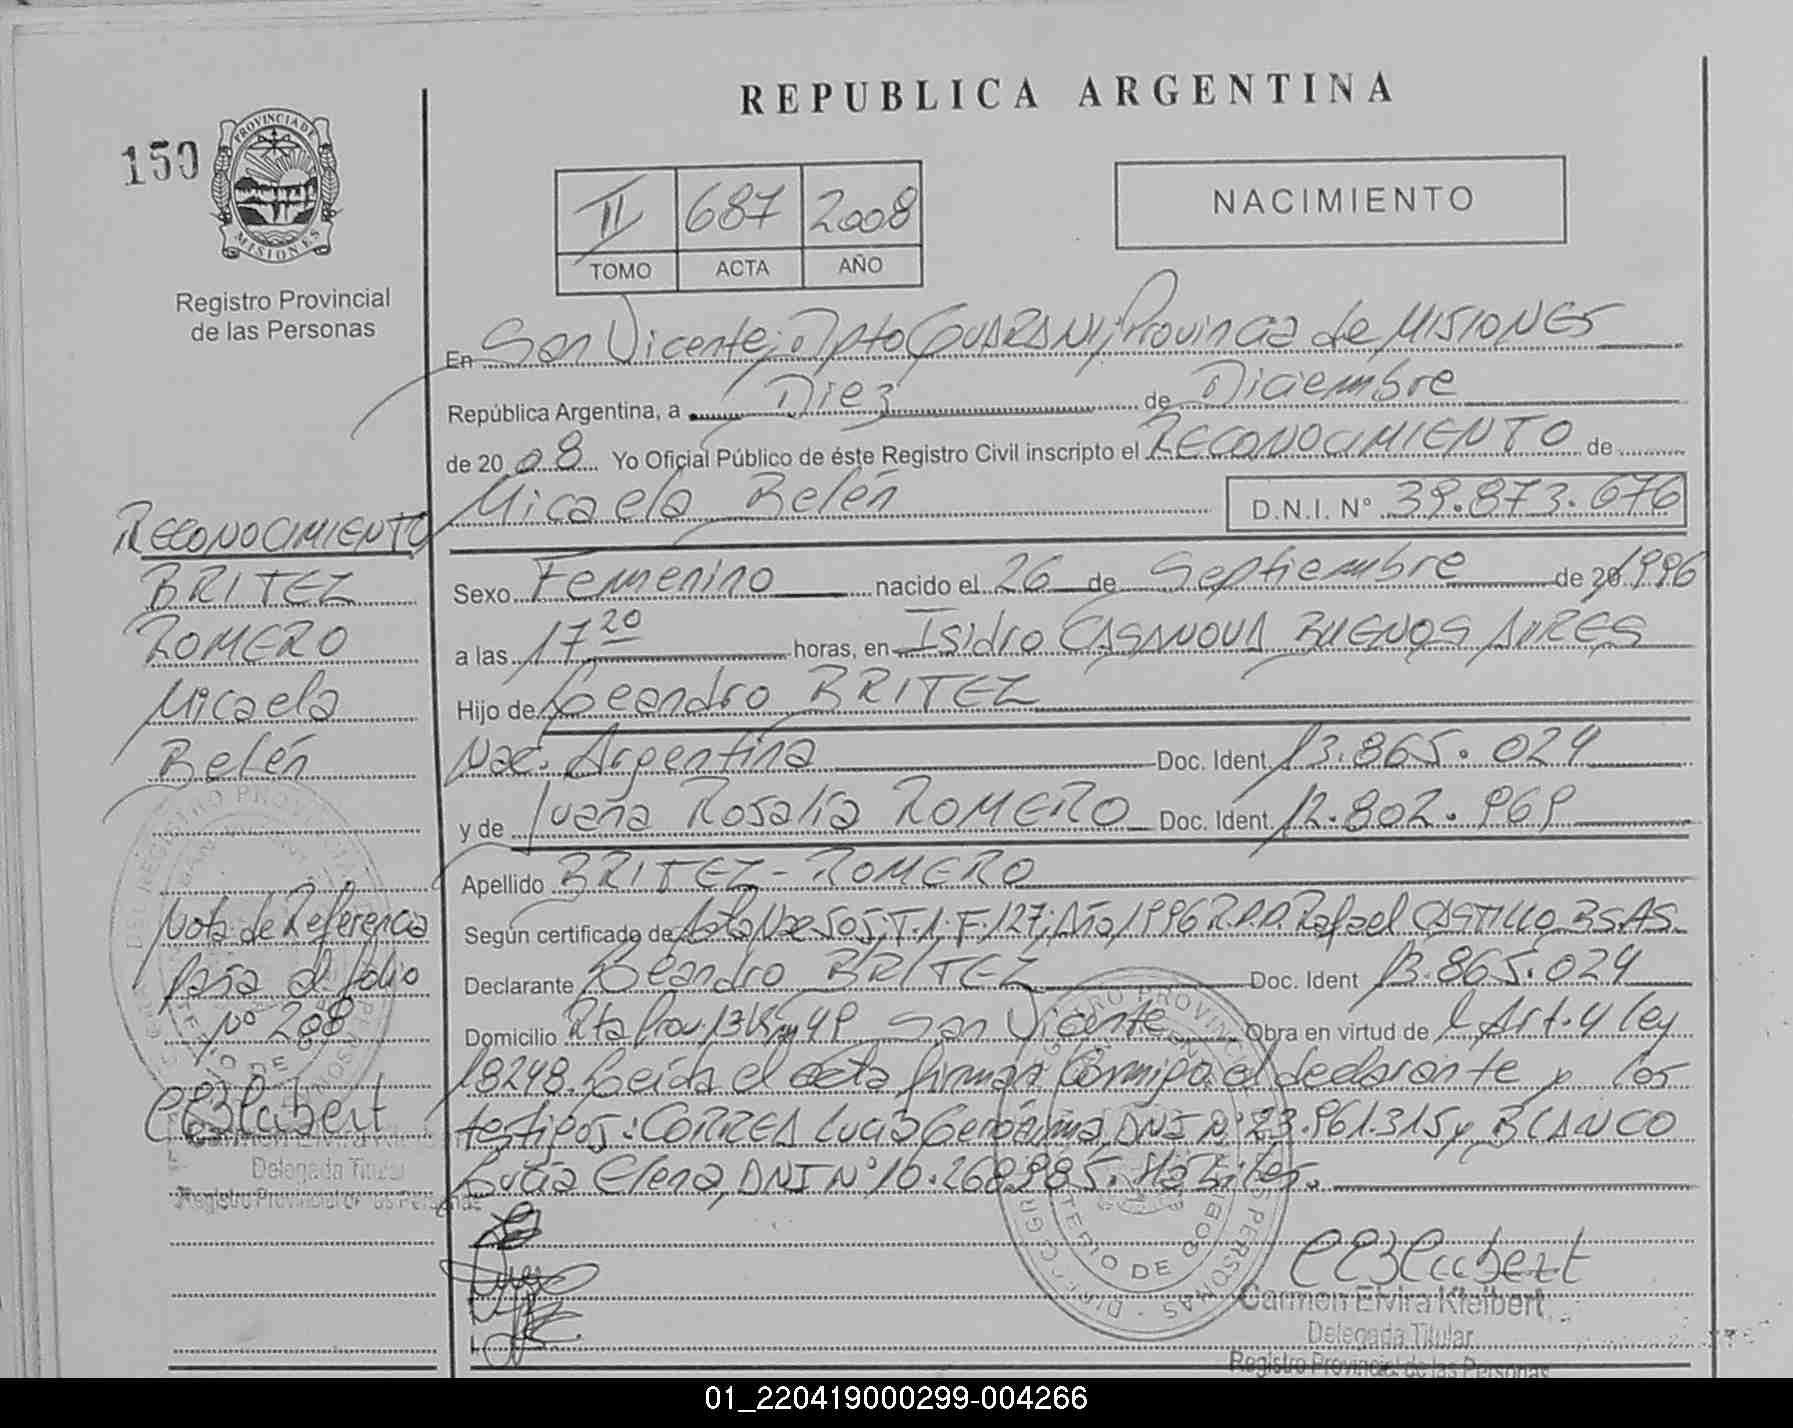 REPUBLICA ARGENTINA
150
PROVINCIA DE
MISIONES
Registro Provincial
de las Personas
II 687 2008
TOMO ACTA AÑO
NACIMIENTO
En San Vicente; Dpto GUARANI; Provincia de MISIONES
República Argentina, a Diez de Diciembre
de 2008 Yo Oficial Público de éste Registro Civil inscripto el RECONOCIMIENTO de
Micaela Belén D.N.I. Nº 39.873.676
Sexo Femenino nacido el 26 de Septiembre de 20 1996
a las 17 20 horas, en Isidro CASANOVA BUENOS AIRES
Hijo de Leandro BRITEZ
Nac. Argentina Doc. Ident. 13.865.024
y de Juana Rosalia ROMERO Doc. Ident. 12.802.969
Apellido BRITEZ - ROMERO
Según certificado de Acta Nac 505; T.1; F.127; Año 1996 R.P.P. Rafael CASTILLO BS.AS.
Declarante Leandro BRITEZ Doc. Ident 13.865.024
Domicilio Rta Prov. 13 Km 49 San Vicente Obra en virtud de l Art. 4 ley
18248. Leída el acta firman conmigo el declarante y los
testigos: CORREA Lucio Gerónimo, DNI Nº 23.961.315 y BLANCO
Lucia Elena, DNI Nº 10.268.985. Hábiles.
RECONOCIMIENTO
BRITEZ
ROMERO
Micaela
Belén
Nota de Referencia
pasa al folio
Nº 208
Delegada Titular
Registro Provincial de las Personas
Carmen Elvira Kleibert
Delegada Titular
Registro Provincial de las Personas
01_220419000299-004266